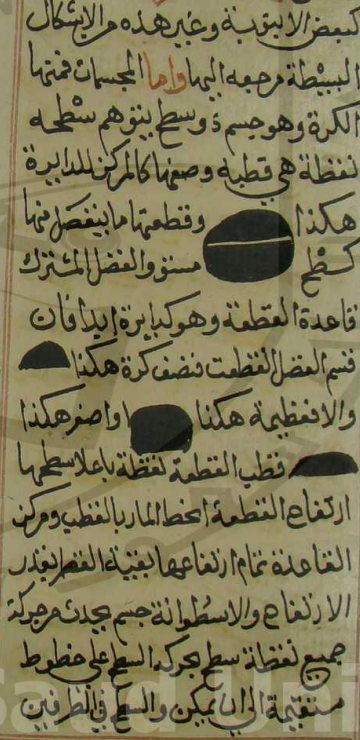 كبعض الابنوبية وغير هذه من الاشكال
البسيطة مرجعه اليها واما المجسمات فمنها
الكرة وهو جسم ذو سطح يتوهم سطحه
نقطة هي قطبه وصفها كالمركز للدايرة
هكذا وقطعتها ما ينفصل منها
كسطح مستو والفصل المشترك
قاعدة القطعة وهو كدايرة ابدا فان
قسم الفصل القطعت فنصف كرة هكذا
والا فعظيمة هكذا او اصغر هكذا
قطب القطعة نقطة باعلا سطحها
ارتفاع القطعة الخط المار بالقطب ومركز
القاعدة تمام ارتفاعها بقية القطر بقدر
الارتفاع والاسطوانة جسم يحدث من حركة
جميع نقطة سطح بحركة السطح على خطوط
مستقيمة الى ان يمكن والسطح في الطرفين